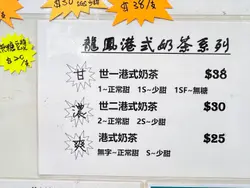 $30
$38/支
無糖豆漿
$20
龍鳳港式奶茶系列
甘 世一港式奶茶 $38
1~正常甜 1S~少甜 1SF~無糖
濃 世二港式奶茶 $30
2~正常甜 2S~少甜
爽 港式奶茶 $25
無字~正常甜 S~少甜